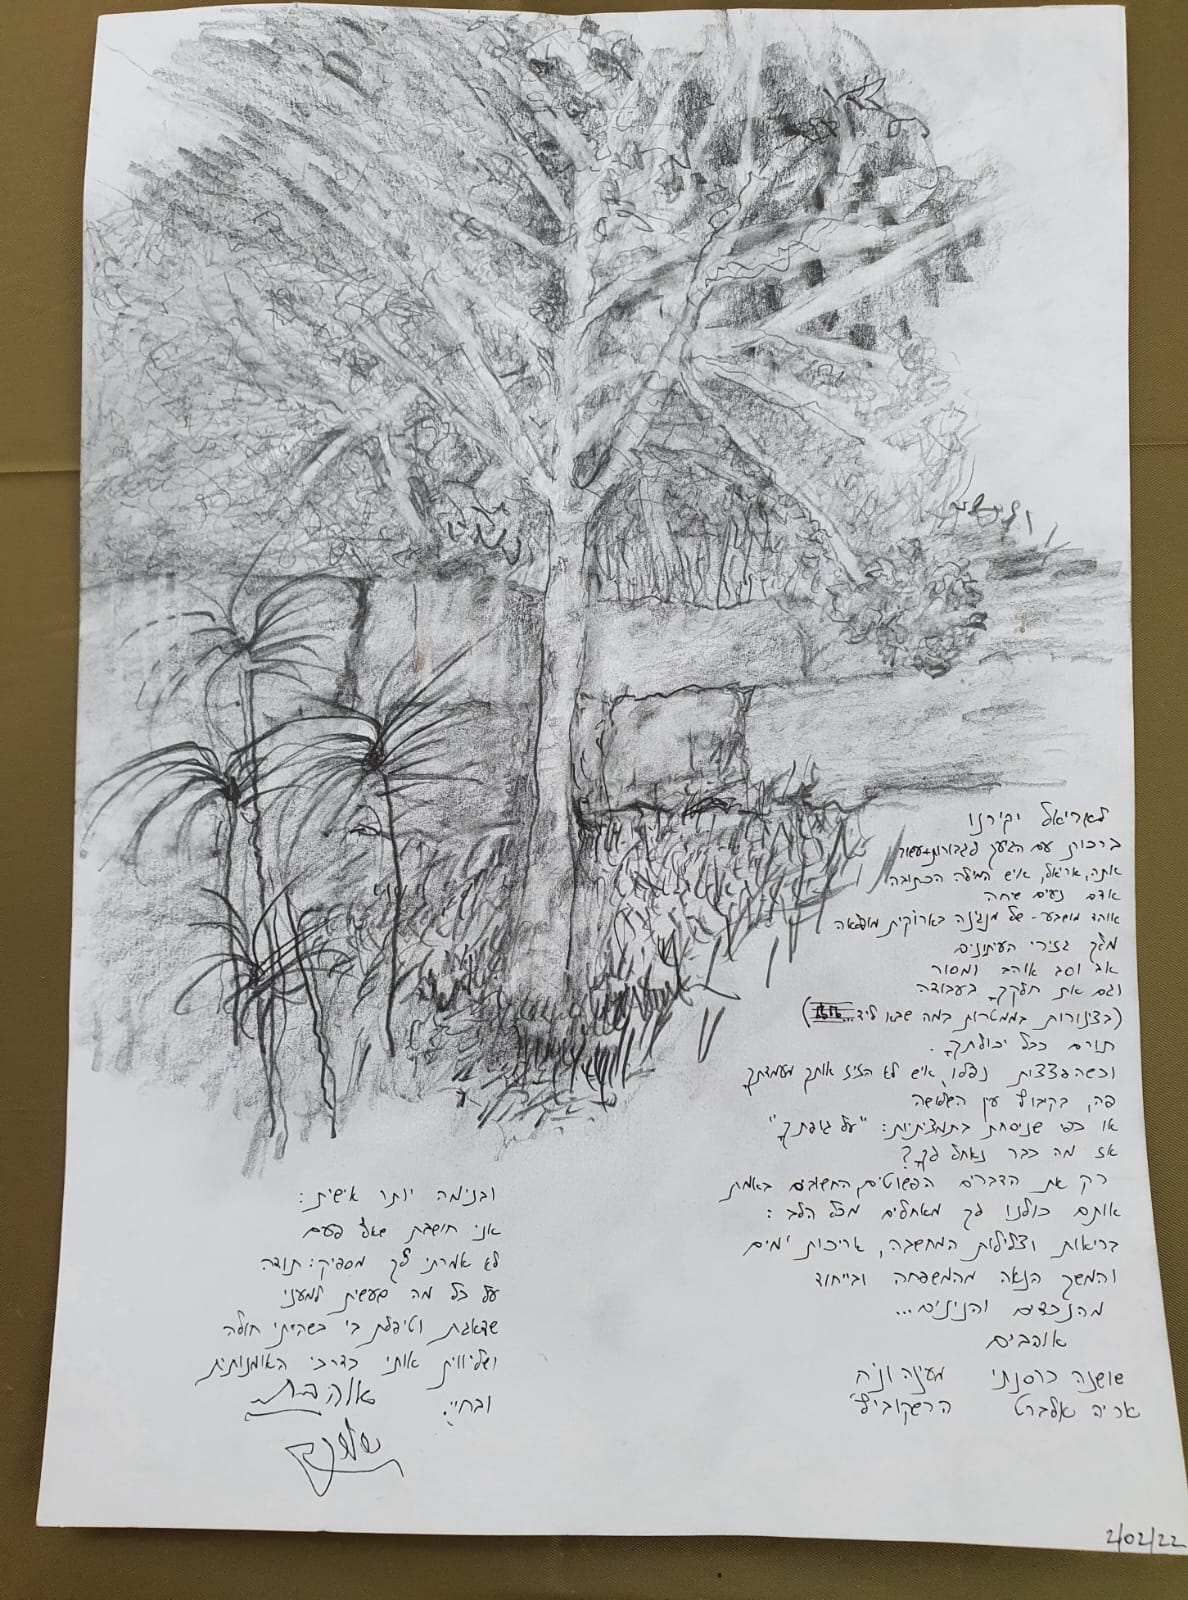 לאריאל יקירנו
ברכות עם הגיעך לגבורות+עשור
אתה, אריאל, איש המילה הכתובה
אדם נעים שיחה
אוהד מושבע - של מנגינה בארוקית מופלאה
מלך גזירי העיתונים
אב וסב אוהב ומסור
וגם את חלקך בעבודה
(בצינורות בממטרות במה שבא ליד...)
תורם ככל יכולתך.
וכשהפצצות נפלו, איש לא הזיז אותך מעמדתך
פה, בקבוץ עין השלושה
או כפי שניסחת בתמציתיות: "על גופתך"
אז מה כבר נאחל לך?
רק את הדברים הפשוטים, החשובים באמת
אותם כולנו לך מאחלים מכל הלב:
בריאות וצלילות המחשבה, אריכות ימים
והמשך הנאה מהמשפחה ובייחוד
מהנכדים והנינים...
אוהבים
שושנה כרסנתי
אריה אלברט הרשקוביץ
ובנימה יותר אישית:
אני חושבת שאף פעם
לא אמרתי לך מספיק: תודה
על כל מה שעשית למעני
שדאגת וטיפלת בי כשהייתי חולה
ושליווית אותי בדרכי האומנותית
ובחיי.
אוהבת
2/02/22